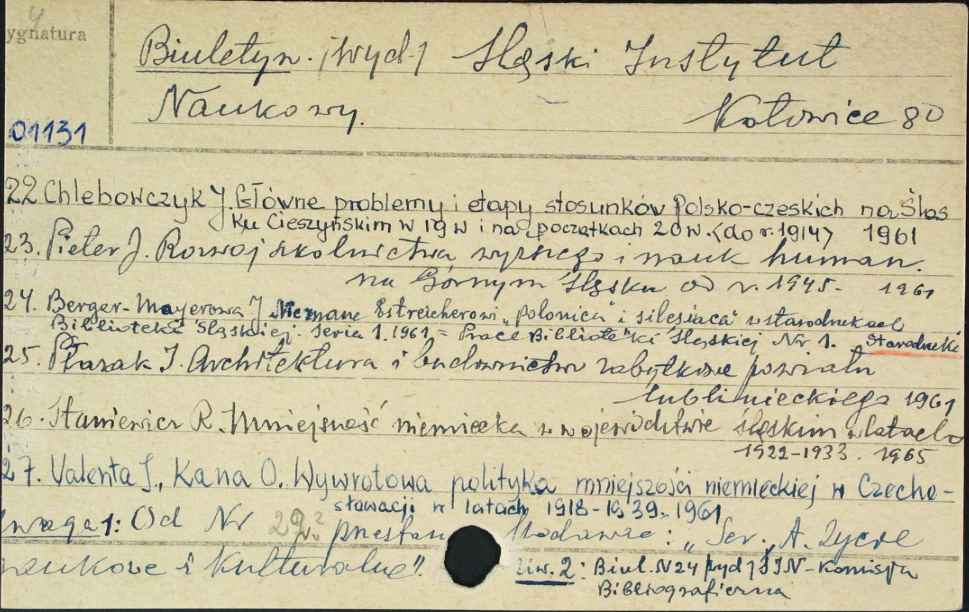 ygnatura
Biuletyn. /wyd./ Śląski Instytut
Naukowy. Katowice 80
01131
22 Chlebowczyk J. Główne problemy i etapy stosunków Polsko-czeskich na Śląs
ku Cieszyńskim w 19 w i na początkach 20 w. (do r. 1914) 1961
23. Pieter J. Rozwój szkolnictwa wyższego i nauk human.
na Górnym Śląsku od r. 1945. 1961
24. Berger-Mayerowa J. Nieznane Estreicherowi „Polonica i silesiaca" w starodrukach
Biblioteki Śląskiej. Seria 1. 1961 = Prace Biblioteki Śląskiej Nr 1. Starodruki
25. Płazak I. Architektura i budownictwo zabytkowe powiatu
lublinieckiego 1961
26. Staniewicz R. Mniejszość niemiecka w województwie śląskim w latach
1922-1933. 1965
27. Valenta J., Kana O. Wywrotowa polityka mniejszości niemieckiej w Czecho-
słowacji w latach 1918-1939. 1961
Uwaga 1: Od Nr 29 : „Ser. A. Życie
naukowe i kulturalne".
Uw. 2: Biul. N 24 /wyd/ ŚIN-Komisja
Bibliograficzna